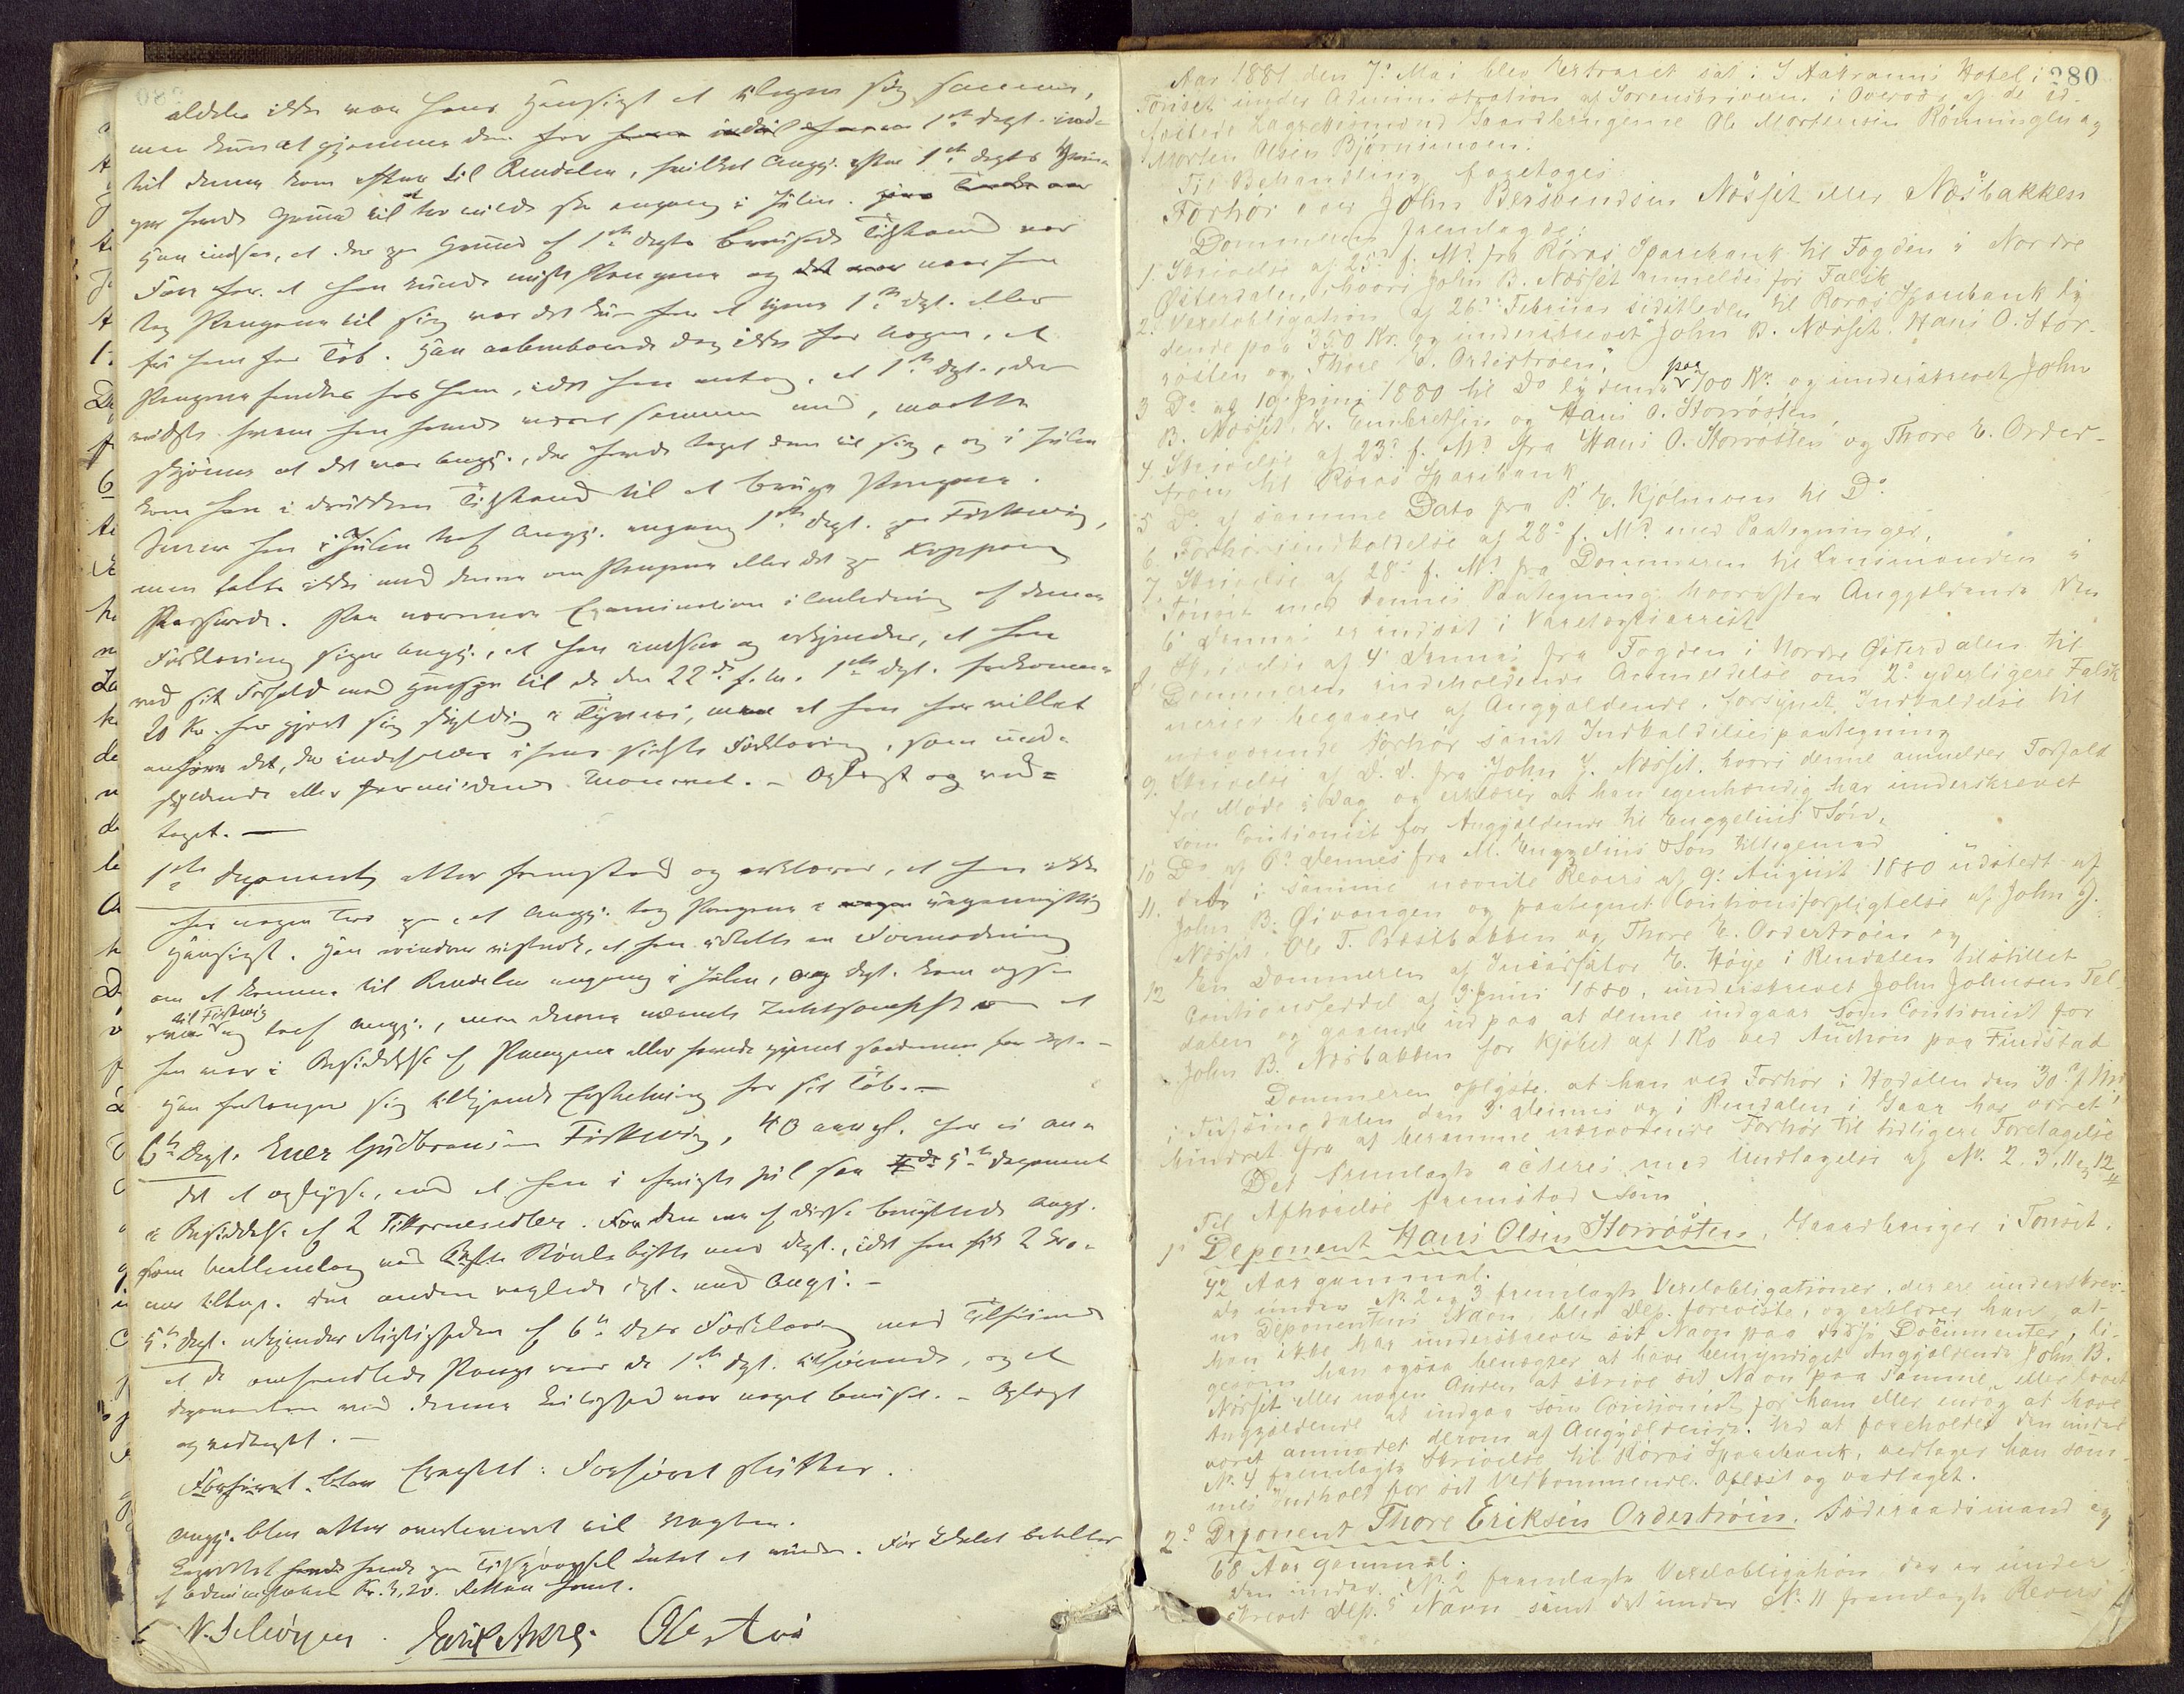 aldeles ikke var hans Hensigt at tilegne sig samme,
men kun at gjemme dem for 1ste Dept. ind-
til denne kom efter til Rendalen, hvilket Angj. efter 1ste Depts
havde Grund til at tro vilde ske engang i Julen.
Han indsaa, at der paa Grund af 1ste Depts berusede Tilstand var
Fare for, at han kunde miste Pengene og naar han
tog Pengene til sig var det kun for at hjælpe 1ste Dept. eller
fri ham for Tab. Han aabenbarede dog ikke for nogen, at
Pengene fandtes hos ham, idet han antog, at 1ste Dept., der
vidste hvem han havde været sammen med, maatte
skjønne at det var Angj., der havde taget dem til sig, og i Julen
kom han i drukken Tilstand til at bruge Pengene.
han i Julen traf Angj. engang 1ste Dept. paa Fiskvig,
men talte ikke med denne om Pengene eller det paa Koppang
Passerede. Paa nærmere Examination i Anledning af denne
Forklaring siger Angj., at han indser og erkjender, at han
ved sit Forhold med Hensyn til de den 22de f. M. 1ste Dept. frakomne
20 Kr. har gjort sig skyldig i Tyveri, men at han har villet
anføre det, der indeholdes i hans sidste Forklaring, som und-
skyldende eller formildende Moment. – Oplæst og ved-
taget. —
1ste Deponent atter fremstod og erklærer, at han ikke
har nogen Tro paa at Angj. tog Pengene i uegennyttig
Hensigt. Han erindrer vistnok, at han udtalte en Formodning
om at komme til Rendalen engang i Julen, og Dept. kom ogsaa
til Fiskvig
og traf Angj., men denne nævnte Intet om at
han var i Besiddelse af Pengene eller havde gjemt saadanne for Dept. –
Han forlanger sig tilkjendt Erstatning for sit Tab. –
6te Dept. Iver Gudbransen Fiskvig, 40 Aar gl. har i An-
det at oplyse, end at han i forrige Jul saa 5te Deponent
i Besiddelse af 2 Tikronesedler. Den ene af disse benyttede Angj.
som Mellemlag ved bytte med Dept., idet han fik 2 Kro-
ner tilbage. Den anden vexlede Dept. med Angj. –
5te Dept. erkjender Rigtigheden af 6te Depts Forklaring med Tilføiende
at de omhandlede Penge var de 1ste Dept. tilhørende, og at
Deponenten ved denne Leilighed var noget beruset. – Oplæst
og vedtaget. –
Forhøret blev Eragtet: Forhøret sluttes.
Angj. blev atter overleveret til Vagten.
Laugrettet havde paa Tilspørgsel Intet at erindre. For betaltes
af Administrator Kr. 3,20. Retten hævet.
N. Schiøtzen . Erik Akre. Ole Aas
280
Aar 1881 den 7de Mai blev Extraret sat i J Aakranns Hotel i
Tønset under Administration af Sorenskriveren i Overværelse af de ed-
fæstede Lagrettesmænd Gaardbrugerne Ole Mortensen Rønningen og
Morten Olsen Bjørnsmoen.
Til Behandling foretoges:
Forhør over John Bersvendsen Næsset eller Næsbakken
Dommeren fremlagde:
1. Skrivelse af 25de f. Md. fra Røros Sparebank til Fogden i Nordre
Østerdalen, hvori John B. Næsset anmeldes for Falsk
2. Vexelobligation af 26de Februar sidstleden til Røros Sparebank ly-
dende paa 350 Kr. og underskrevet "John B. Næsset. Hans O. Stor-
røsten og Thore E. Orderstrøen".
3 Do af 10 Juni 1880 til Do lydende paa 700 Kr. og underskrevet John
B. Næsset. E. Embretsen og Hans O. Storrøsten
4 Skrivelse af 23de f. Md fra Hans O. Storrøsten og Thore E. Order-
strøen til Røros Sparebank
5 Do af samme Dato fra P. E. Kjølmoen til Do.
6. Forhørsindkaldelse af 28de f. Md. med Paategninger,
7. Skrivelse af 28de f. Md. fra Dommeren til Lensmanden i
Tønset med dennes Paategning hvorefter Angjældende den
6 dennes er indsat i Varetægtsarrest
8. Skrivelse af 4 dennes fra Fogden i Nordre Østerdalen til
Dommeren indeholdende Anmeldelse om 2de yderligere Falsk
nerier begaaede af Angjældende, forsynet Indkaldelse til
nærværende Forhør samt Indkaldelsespaategning
9. Skrivelse af D. D. fra John J. Næsset, hvori denne anmelder Forfald
for Møde i Dag og erklærer at han egenhændig har underskrevet
som Cautionist for Angjældende til Engzelius & Søn,
10 Do af 6 dennes fra M. Engzelius & Søn tilligemed
11. det i samme nævnte Revers af 9de August 1880 udstedt af
John B. Øivangen og paategnet Cautionsforpligtelse af John J.
Næsset, Ole T. Bækbakken og Thore E. Orderstrøen og
12 En Dommeren af Incassator E. Høye i Rendalen tilstillet
Cautionsseddel af 3 Juni 1880, underskrevet John Johnsen Fel-
dalen og gaaende ud paa at denne indgaar som Cautionist for
John B. Næsbakken for Kjøbet af 1 Ko ved Auction paa Findstad
Dommeren oplyste at han ved Forhør i Hodalen den 30te f. Md.,
i dalen den 3 dennes og i Rendalen i Gaar har været
hindret fra at beramme nærværende Forhør til tidligere Foretagelse
Det Fremlagte acteres med Undtagelse af No. 2, 3, 11 og 12
Til Afhørelse fremstod som
1ste Deponent Hans Olsen Storrøsten, Gaardbruger i Tønset,
42 Aar gammel.
De under No. 2 og 3 fremlagte Vexelobligationer, der ere underskrev-
ne Deponentens Navn, blev Dep. foreviste, og erklærer han at
han ikke har underskrevet sit Navn paa disse Documenter, li-
gesom han ogsaa benægter at have bemyndiget Angjældende John B.
Næsset eller nogen Anden at skrive sit Navn paa samme, eller lovet
Angjældende at indgaa som Cautionist for ham eller endog at have
været anmodet derom af Angjældende. Ved at foreholdes den under
No. 4 fremlagte Skrivelse til Røros Sparebank, vedtager han sam-
mes Indhold for sit Vedkommende. Oplæst og vedtaget.
2de Deponent Thore Eriksen Orderstrøen. Føderaadsmand og
68 Aar gammel.
Den under No. 2 fremlagte Vexelobligation, der er under
skrevet Dep.s Navn samt det under No. 11 fremlagte Revers